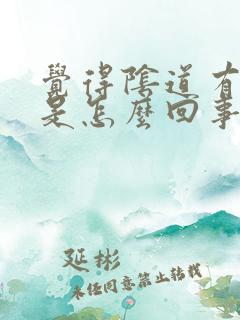 覺得陰道有
是怎麼回事
延彬
未經同意禁止轉載